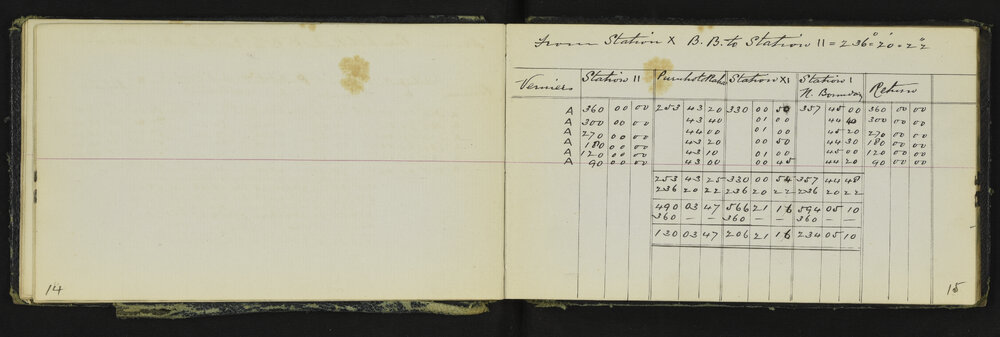 From Station X B.B. to Station II = 236° = 20' = 22"
Verniers Station II Station XI Station I Return
N. Boundary
A 360 00 00 253 43 20 330 00 50 357 45 00 360 00 00
A 300 00 00 43 40 01 00 44 40 300 00 00
A 270 00 00 44 00 01 00 45 20 270 00 00
A 180 00 00 43 20 00 50 44 30 180 00 00
A 120 00 00 43 10 01 00 45 00 120 00 00
A 90 00 00 43 00 00 45 44 20 90 00 00
253 43 25 330 00 54 357 44 48
236 20 22 236 20 22 236 20 22
490 03 47 566 21 16 594 05 10
360 — — 360 — — 360 — —
130 03 47 206 21 16 234 05 10
14
15